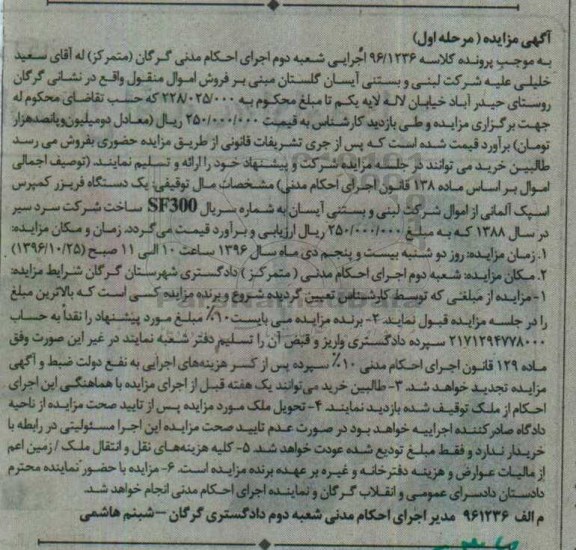 آگهی مزایده ( مرحله اول)
به موجب پرونده کلاسه ۹۶/۱۲۳۶ اجرایی شعبه دوم اجرای احکام مدنی گرگان (متمرکز) له آقای سعید
خلیلی علیه شرکت لبنی و بستنی آیسان گلستان مبنی بر فروش اموال منقول واقع در نشانی گرگان
روستای حیدر آباد خیابان لاله لایه یکم تا مبلغ محکوم به ۲۲۸/۰۲۵/۰۰۰ که حسب تقاضای محکوم له
جهت برگزاری مزایده و طی بازدید کارشناس به قیمت ۲۵۰/۰۰۰/۰۰۰ ریال (معادل دومیلیون‌وپانصدهزار
تومان) برآورد قیمت شده است که پس از جری تشریفات قانونی از طریق مزایده حضوری بفروش می رسد
طالبین خرید می توانند در جلسه مزایده شرکت و پیشنهاد خود را ارائه و تسلیم نمایند. (توصیف اجمالی
اموال بر اساس ماده ۱۳۸ قانون اجرای احکام مدنی) مشخصات مال توقیفی: یک دستگاه فریزر کمپرس
اسپک آلمانی از اموال شرکت لبنی و بستنی آیسان به شماره سریال SF300 ساخت شرکت سرد سیر
در سال ۱۳۸۸ که به مبلغ ۲۵۰/۰۰۰/۰۰۰ ریال ارزیابی و برآورد قیمت می گردد. زمان و مکان مزایده:
۱. زمان مزایده: روز دو شنبه بیست و پنجم دی ماه سال ۱۳۹۶ ساعت ۱۰ الی ۱۱ صبح (۱۳۹۶/۱۰/۲۵)
۲. مکان مزایده: شعبه دوم اجرای احکام مدنی ( متمرکز ) دادگستری شهرستان گرگان شرایط مزایده:
۱- مزایده از مبلغی که توسط کارشناس تعیین گردیده شروع و برنده مزایده کسی است که بالاترین مبلغ
را در جلسه مزایده قبول نماید. ۲- برنده مزایده می بایست ۱۰٪ مبلغ مورد پیشنهاد را نقداً به حساب
۲۱۷۱۲۹۴۷۷۸۰۰۰ سپرده دادگستری واریز و قبض آن را تسلیم دفتر شعبه نمایند در غیر این صورت وفق
ماده ۱۲۹ قانون اجرای احکام مدنی ۱۰٪ سپرده پس از کسر هزینه‌های اجرایی به نفع دولت ضبط و آگهی
مزایده تجدید خواهد شد. ۳- طالبین خرید می‌توانند یک هفته قبل از اجرای مزایده با هماهنگی این اجرای
احکام از ملک توقیف شده بازدید نمایند. ۴- تحویل ملک مورد مزایده پس از تایید صحت مزایده از ناحیه
دادگاه صادر کننده اجراییه خواهد بود در صورت عدم تایید صحت مزایده این اجرا مسئولیتی در رابطه با
خریدار ندارد و فقط مبلغ تودیع شده عودت خواهد شد. ۵- کلیه هزینه‌های نقل و انتقال ملک / زمین اعم
از مالیات عوارض و هزینه دفترخانه و غیره بر عهده برنده مزایده است. ۶- مزایده با حضور نماینده محترم
دادستان دادسرای عمومی و انقلاب گرگان و نماینده اجرای احکام مدنی انجام خواهد شد.
م الف ۹۶۱۲۳۶ مدیر اجرای احکام مدنی شعبه دوم دادگستری گرگان – شبنم هاشمی